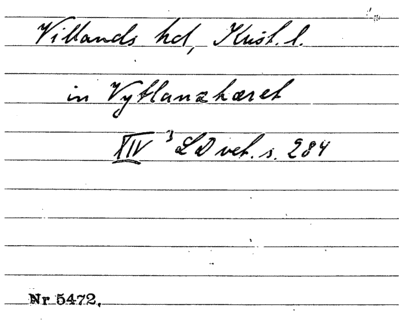 Villands hd, Krist. l.
in Vytlanzhæret
XIV ³ LD vet. s. 284
Nr 5472.